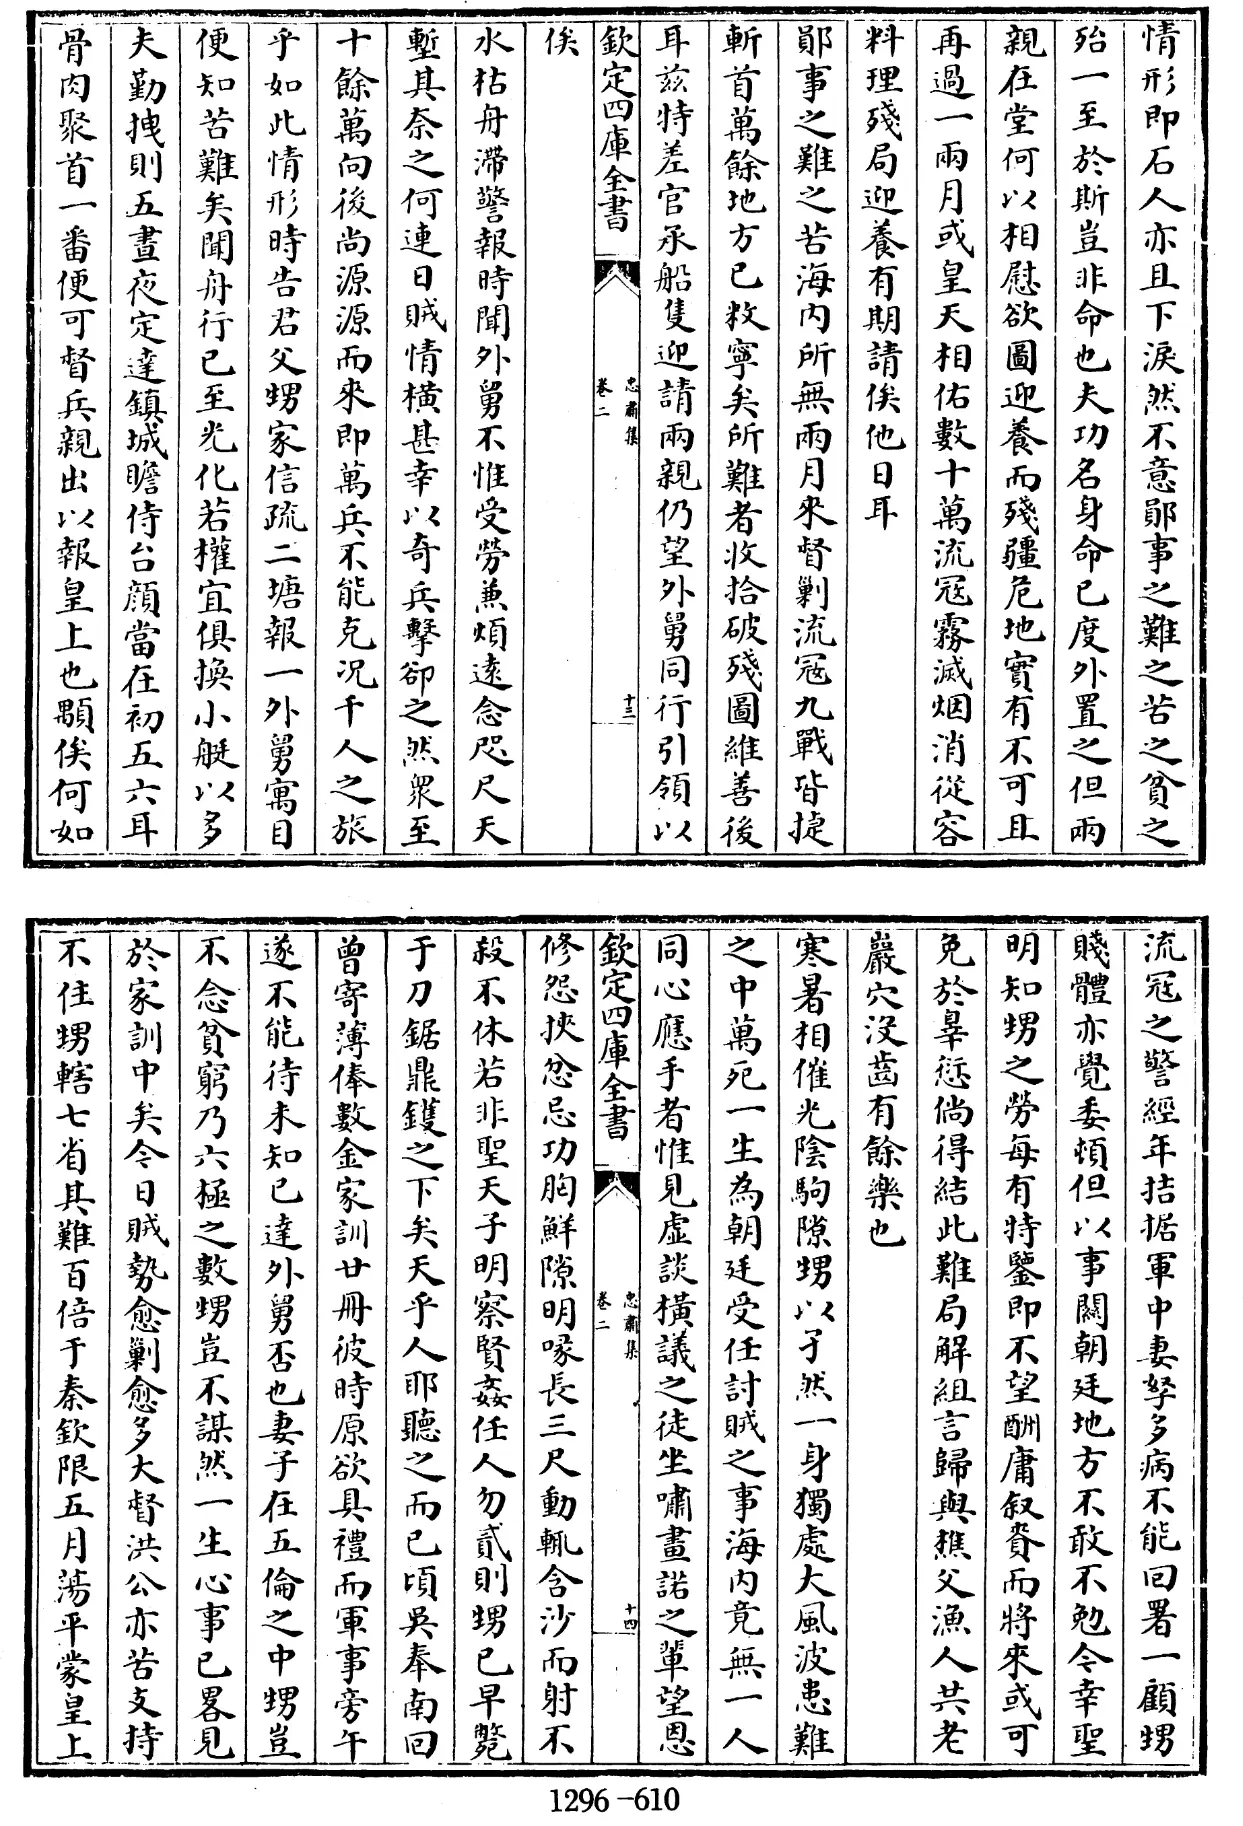 情形即石人亦且下淚然不意鄖事之難之苦之貧之
殆一至於斯豈非命也夫功名身命已度外置之但兩
親在堂何以相慰欲圖迎養而殘疆危地實有不可且
再過一兩月或皇天相佑數十萬流寇霧滅烟消從容
料理殘局迎養有期請俟他日耳
鄖事之難之苦海內所無兩月來督剿流寇九戰皆捷
斬首萬餘地方已敉寧矣所難者收拾破殘圖維善後
耳兹特差官承船隻迎請兩親仍望外舅同行引領以
欽定四庫全書
忠肅集
卷二
十三
俟
水枯舟滯警報時聞外舅不惟受勞兼煩遠念咫尺天
塹其奈之何連日賊情橫甚幸以奇兵擊卻之然眾至
十餘萬向後尚源源而來即萬兵不能克况千人之旅
乎如此情形時告君父甥家信疏二塘報一外舅寓目
便知苦難矣聞舟行已至光化若權宜俱換小艇以多
夫勤拽則五晝夜定達鎮城瞻侍台顏當在初五六耳
骨肉聚首一番便可督兵親出以報皇上也顒俟何如
流寇之警經年拮据軍中妻孥多病不能回署一顧甥
賤體亦覺委頓但以事關朝廷地方不敢不勉今幸聖
明知甥之勞每有特鑒即不望酬庸叙賚而將來或可
免於辠愆倘得結此難局解組言歸與樵父漁人共老
巖穴沒齒有餘樂也
寒暑相催光陰駒隙甥以孑然一身獨處大風波患難
之中萬死一生為朝廷受任討賊之事海內竟無一人
同心應手者惟見虛談橫議之徒坐嘯畫諾之輩望恩
欽定四庫全書
忠肅集
卷二
十四
修怨挾忿忌功胸鮮隙明喙長三尺動輒含沙而射不
殺不休若非聖天子明察賢姦任人勿貳則甥已早斃
于刀鋸鼎鑊之下矣天乎人耶聽之而已頃吳奉南回
曾寄薄俸數金家訓廿冊彼時原欲具禮而軍事旁午
遂不能待未知已達外舅否也妻子在五倫之中甥豈
不念貧窮乃六極之數甥豈不謀然一生心事已畧見
於家訓中矣今日賊勢愈剿愈多大督洪公亦苦支持
不住甥轄七省其難百倍于秦欽限五月蕩平蒙皇上
1296-610